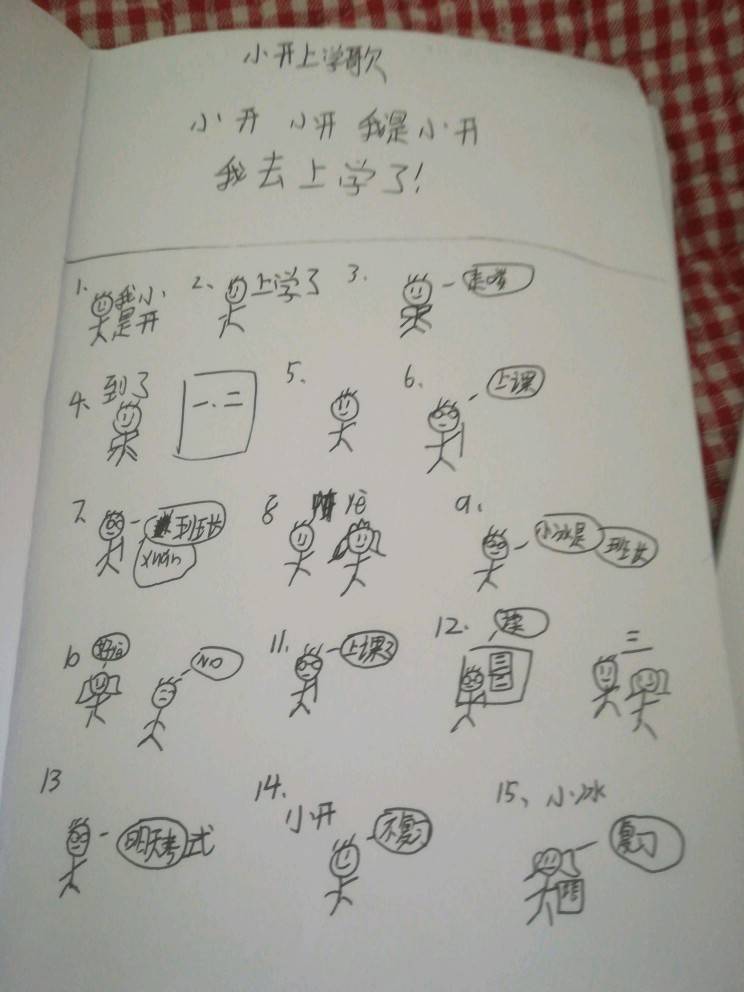 小开上学歌
小开 小开 我是小开
我去上学了!
1. 我是小开
2. 上学了
3. 走喽
4. 到了
一、二
5.
6. 上课
7. 班长
xuǎn
8
9. 小冰是班长
10 好的
NO
11. 上课了
12. 读
三
三
三
13 明天考式
14. 小开
不复习
15、小冰
复习